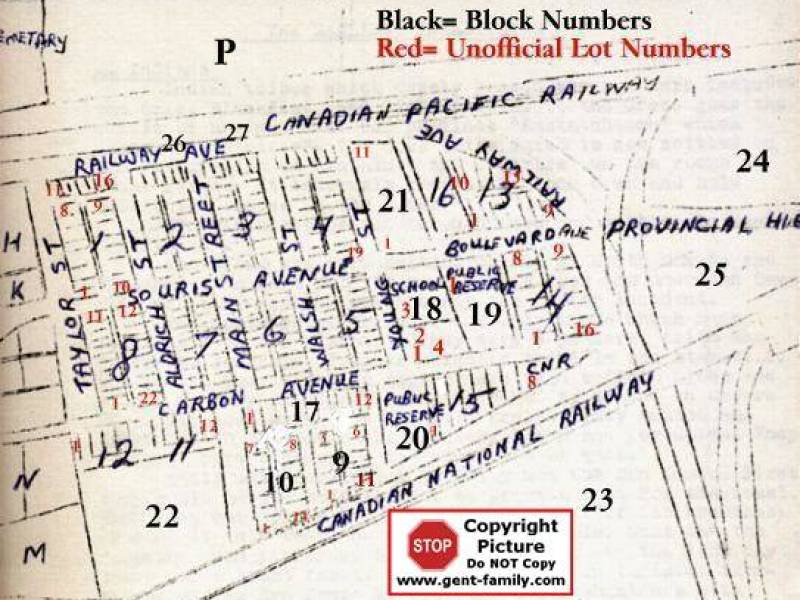 Black= Block Numbers
Red= Unofficial Lot Numbers
P
CANADIAN PACIFIC RAILWAY
26
27
RAILWAY AVE
RAILWAY AVE
24
11
16
8
9
11
10
13
9
21
16
13
1
1
H
K
1
2
3
4
TAYLOR ST
ALDRICH ST
MAIN STREET
WALSH ST
YOUNG ST
19
BOULEVARD AVE
PROVINCIAL
25
SOURIS AVENUE
SCHOOL
PUBLIC RESERVE
8
9
1
10
11
12
8
7
6
5
3
18
2
1
4
19
14
1
16
1
22
CARBON AVENUE
CNR
8
12
1
17
12
PUBLIC
RESERVE
15
20
1
12
11
7
8
6
10
9
11
1
N
M
22
CANADIAN NATIONAL RAILWAY
23
STOP
Copyright
Picture
Do NOT Copy
www.gent-family.com